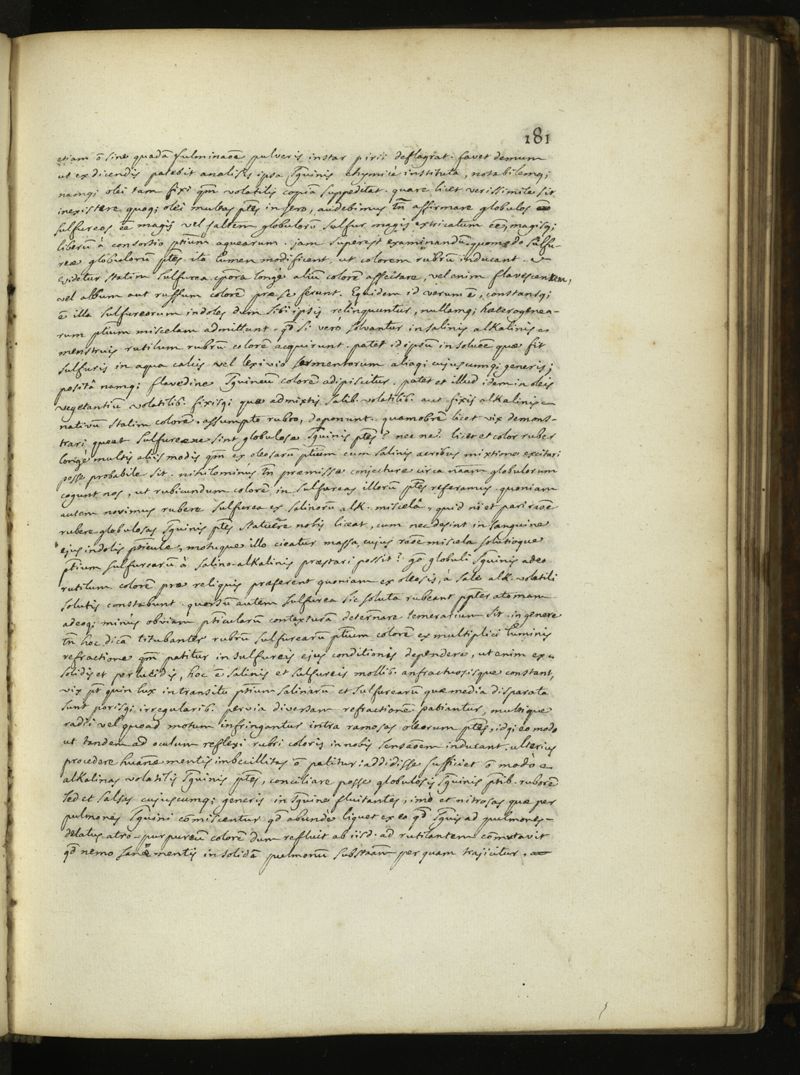 181
etiam õ sine quadã fulminaõe pulveris instar pirii deflagrat. favet demum
ut ex dicendis patebit analisis ipsa sg̃uinis chymicè instituta, notabilemq;
namq; olei tam fixi qm̃ volatilis copiã suppeditat. quare licet verissimile sit
inexistere quoq; olei multas ptẽs in sero, audebimus tñ affirmare globulos
sulfureos eẽ magis vel saltem globulorũ sulfur magis extricatum eẽ, magisq;
liberũ à consortio ptiũm aquearum. jam superest examinandũ quomodo sulfu-
reæ globulorũ ptẽs ita lumen modificent, ut colorem rubrũ inducant.
videtur statim sulfurea cp̃ora longè aliũ colorẽ affectare, vel enim flavescentem,
vel album aut ruffum colorẽ præ se ferunt. Equidem id verum ẽ, constansq;
ẽ illa sulfureorum indoles dum sibi ipsis relinquuntur, nullamq; hæterogenea-
rum ptium miscelam admittunt. qd̃ si verò solvantur in salinis alkalinis
menstruis rutilum rubrũ colorẽ acquirunt. patet id ipsũ in soluõe quæ fit
sulfuris in aqua calcis vel lexivio sarmentorum aliaq; cujuscumq; generis;
posita namq; flavedine sg̃uineũ colorẽ adipiscitur. patet et illud idem in oleis
vegetantiũ volatilib. fixisq; quæ admixtis salib. volatilib. aut fixis alkalinis
nativũ statim colorẽ, assumpto rubro, deponunt. quamobrẽ licet vix demons-
trari queat sulfureæne sint globulosæ sg̃uinis ptẽs? nec ne? licet et color ruber
longe multis aliis modis qm̃ ex oleosarũ ptium cum salinis acribus mixtione excitari
posse probabile sit. nihilominus tñ præmissæ conjecturæ circa nãam globulorum
cogunt nos, ut rubicundum colorẽ in sulfureas illorũ ptẽs referamus. quoniam
autem novimus rubere sulfurea ex salinorũ alk. miscelâ, quid ni et pari raõe
rubere globulosas sg̃uinis ptẽs statuere nobis liceat, cum nec desint in sanguine
ejus indolis pticulæ, motuque illo cieatur massa, cujus raõe miscela solutioque
ptium sulfurearũ à salino-alkalinis præstari possit? gõ globuli sg̃uinis adeo
rutilum colorẽ præ reliquis præferent quoniam ex oleosis, a sale alk. volatili
solutis constabunt. quorsũ autem sulfurea sic soluta rubeant ppter atomam
adeoq; minus obviam pticularũ contexturã determ̃are temerarium sit. in genere
tñ hoc dicã titubanter rubrũ sulfurearũ ptium colorẽ ex multiplici luminis
refractione qm̃ patitur in sulfureis ejus conditionis dependere, ut enim ex
solidis et perluidis, hoc ẽ salinis et sulfureis mollib. anfractuosisque constant,
vix pt̃ quin lux in transitu ptium salinarũ et sulfurearũ quæ media disparata
sunt porisq; irregularib. pervia diversam refractionẽ patiantur, multique
radii vel quead motum infringantur intra ramosas oleorum ptẽs, idq; eo modo
ut tandem ad oculum reflexi rubri coloris in nobis sensaõem inducant. ulterius
procedere humanæ mentis imbecillitas õ patitur: addidisse sufficiet õ modò
alkalinas volatilis sg̃uinis ptẽs, conciliare posse globulosis sg̃uinis ptib. ruborẽ
sed et salsas cujuscumq; generis in sg̃uine fluitantes, imò et nitrosas quæ per
pulmones sg̃uini com̃iscentur qd̃ abunde liquet ex eo qd̃ sg̃uis ad pulmones
delatus atro-purpureũ colorẽ dum refluit ab iisd. ad rutilantem com̃utavit
qd̃ nemo sanæ mentis in solidã pulmonũ substaãm per quam trajicitur.